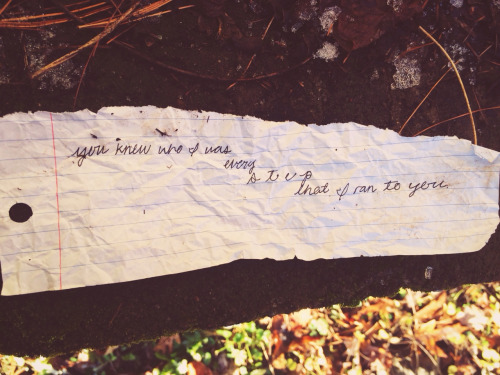 you knew who I was
every
s t e p
that I ran to you.